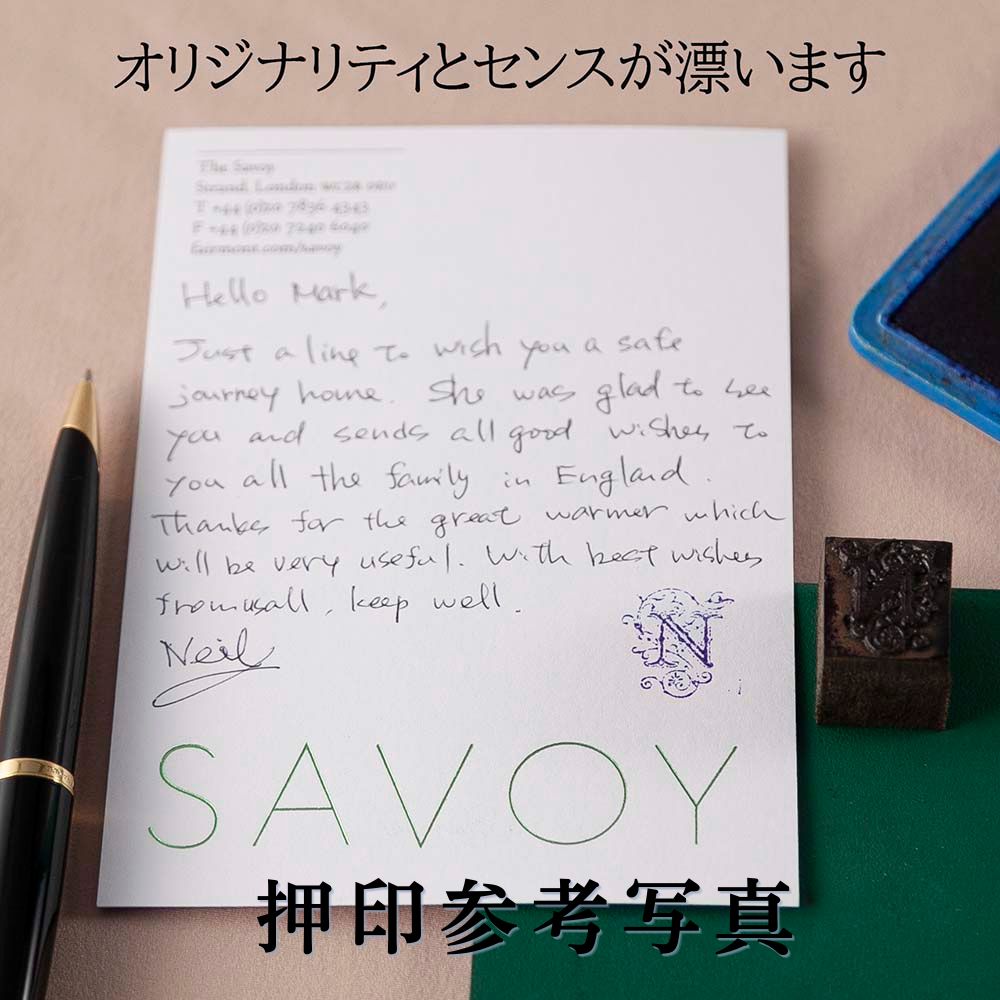 オリジナリティとセンスが漂います
The Savoy
Strand, London WC2R
T +44 (0)20 7836 4343
F +44 (0)20 7240 6040
fairmont.com/savoy
Hello Mark,
Just a line to wish you a safe
journey home. She was glad to see
you and sends all good wishes to
you all the family in England.
Thanks for the great warmer which
will be very useful. With best wishes
from us all, keep well.
Neil
N
SAVOY
押印参考写真